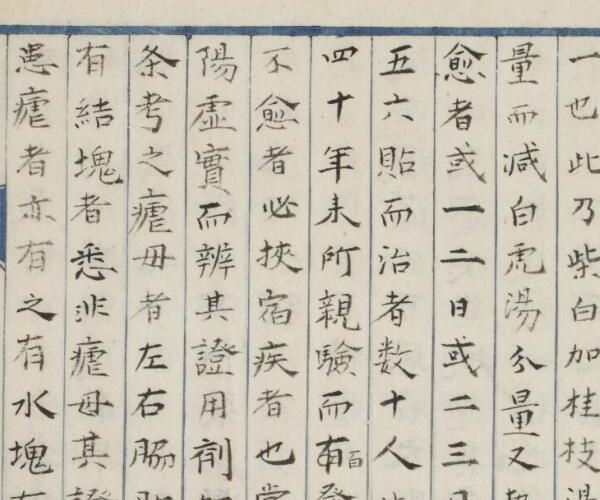 一也此乃柴白加桂枝湯
量而减白虎湯分量又
愈者或一二日或二三日
五六貼而治者數十人
四十年来所親驗而有百發
不愈者必挾宿疾者也當
陽虛實而辨其證用劑
条考之瘧母者左右脇
有結塊者悉非瘧母其證
患瘧者亦有之有水塊有